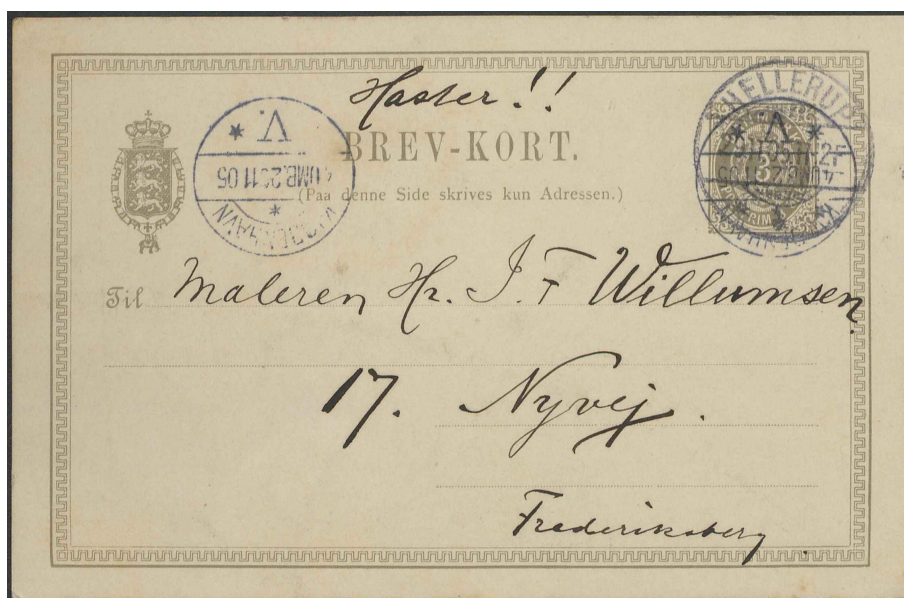 Haster!!
BREV-KORT.
(Paa denne Side skrives kun Adressen.)
V.
4 OMB. 2 11 05
KJØBENHAVN
HELLERUP
V.
Til Maleren Hr. J. F Willumsen
17. Nyvej.
Frederiksberg